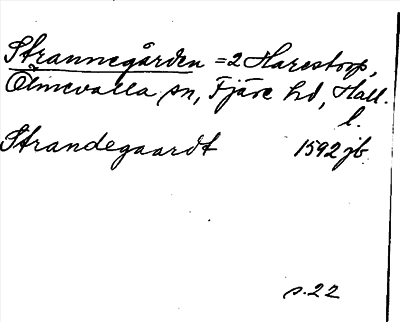 Strannegården = 2 Harestorp,
Ölmevalla sn, Fjäre hd, Hall.
l.
Strandegaardt 1592 jb
s. 22